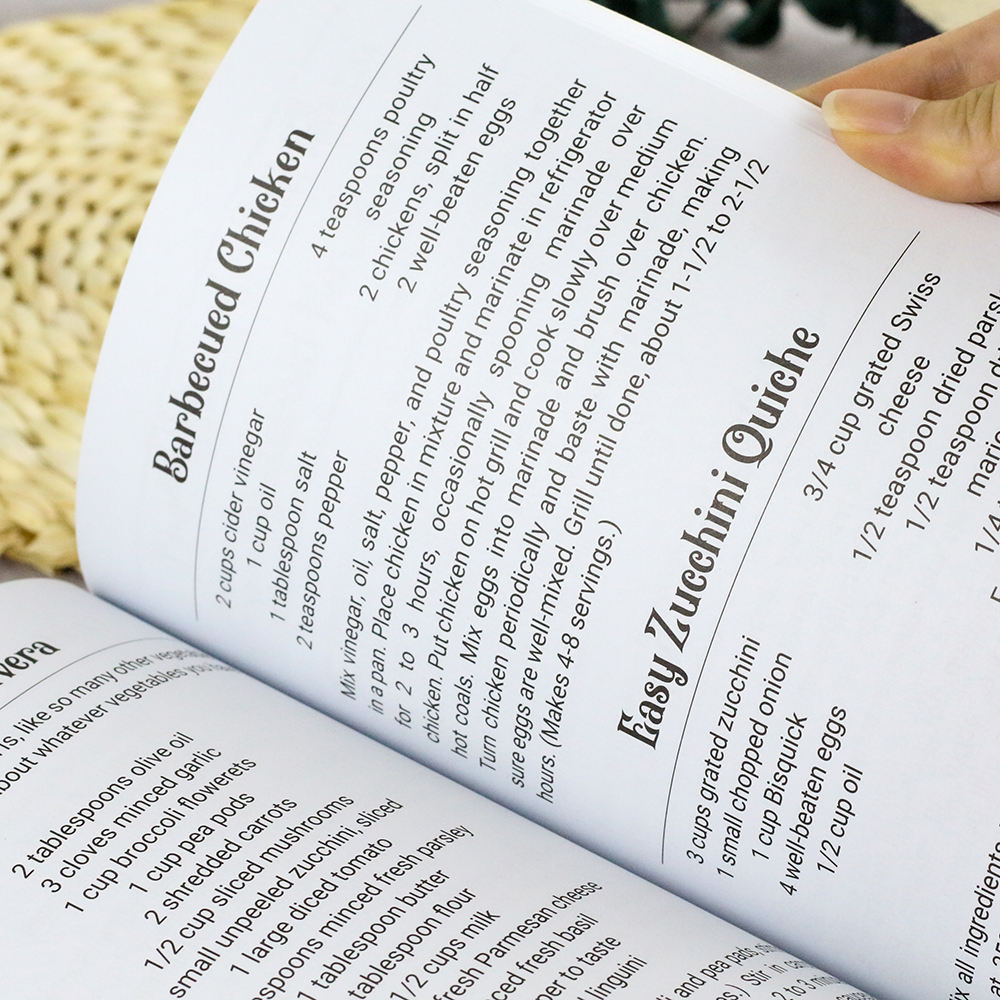 Barbecued Chicken
2 cups cider vinegar
1 cup oil
1 tablespoon salt
2 teaspoons pepper
4 teaspoons poultry
seasoning
2 chickens, split in half
2 well-beaten eggs
Mix vinegar, oil, salt, pepper, and poultry seasoning together
in a pan. Place chicken in mixture and marinate in refrigerator
for 2 to 3 hours, occasionally spooning marinade over
chicken. Put chicken on hot grill and cook slowly over medium
hot coals. Mix eggs into marinade and brush over chicken.
Turn chicken periodically and baste with marinade, making
sure eggs are well-mixed. Grill until done, about 1-1/2 to 2-1/2
hours. (Makes 4-8 servings.)
Easy Zucchini Quiche
3 cups grated zucchini
1 small chopped onion
1 cup Bisquick
4 well-beaten eggs
1/2 cup oil
3/4 cup grated Swiss
cheese
1/2 teaspoon dried
1/2 teaspoon
1/4
all ingredients
like so many other
about whatever vegetables
2 tablespoons olive oil
3 cloves minced garlic
1 cup broccoli flowerets
1 cup pea pods
2 shredded carrots
1/2 cup sliced mushrooms
small unpeeled zucchini, sliced
1 large diced tomato
minced fresh parsley
1 tablespoon butter
tablespoon flour
1/2 cups milk
fresh Parmesan cheese
fresh basil
to taste
linguini
and pea pads,
Stir in
2 to 3